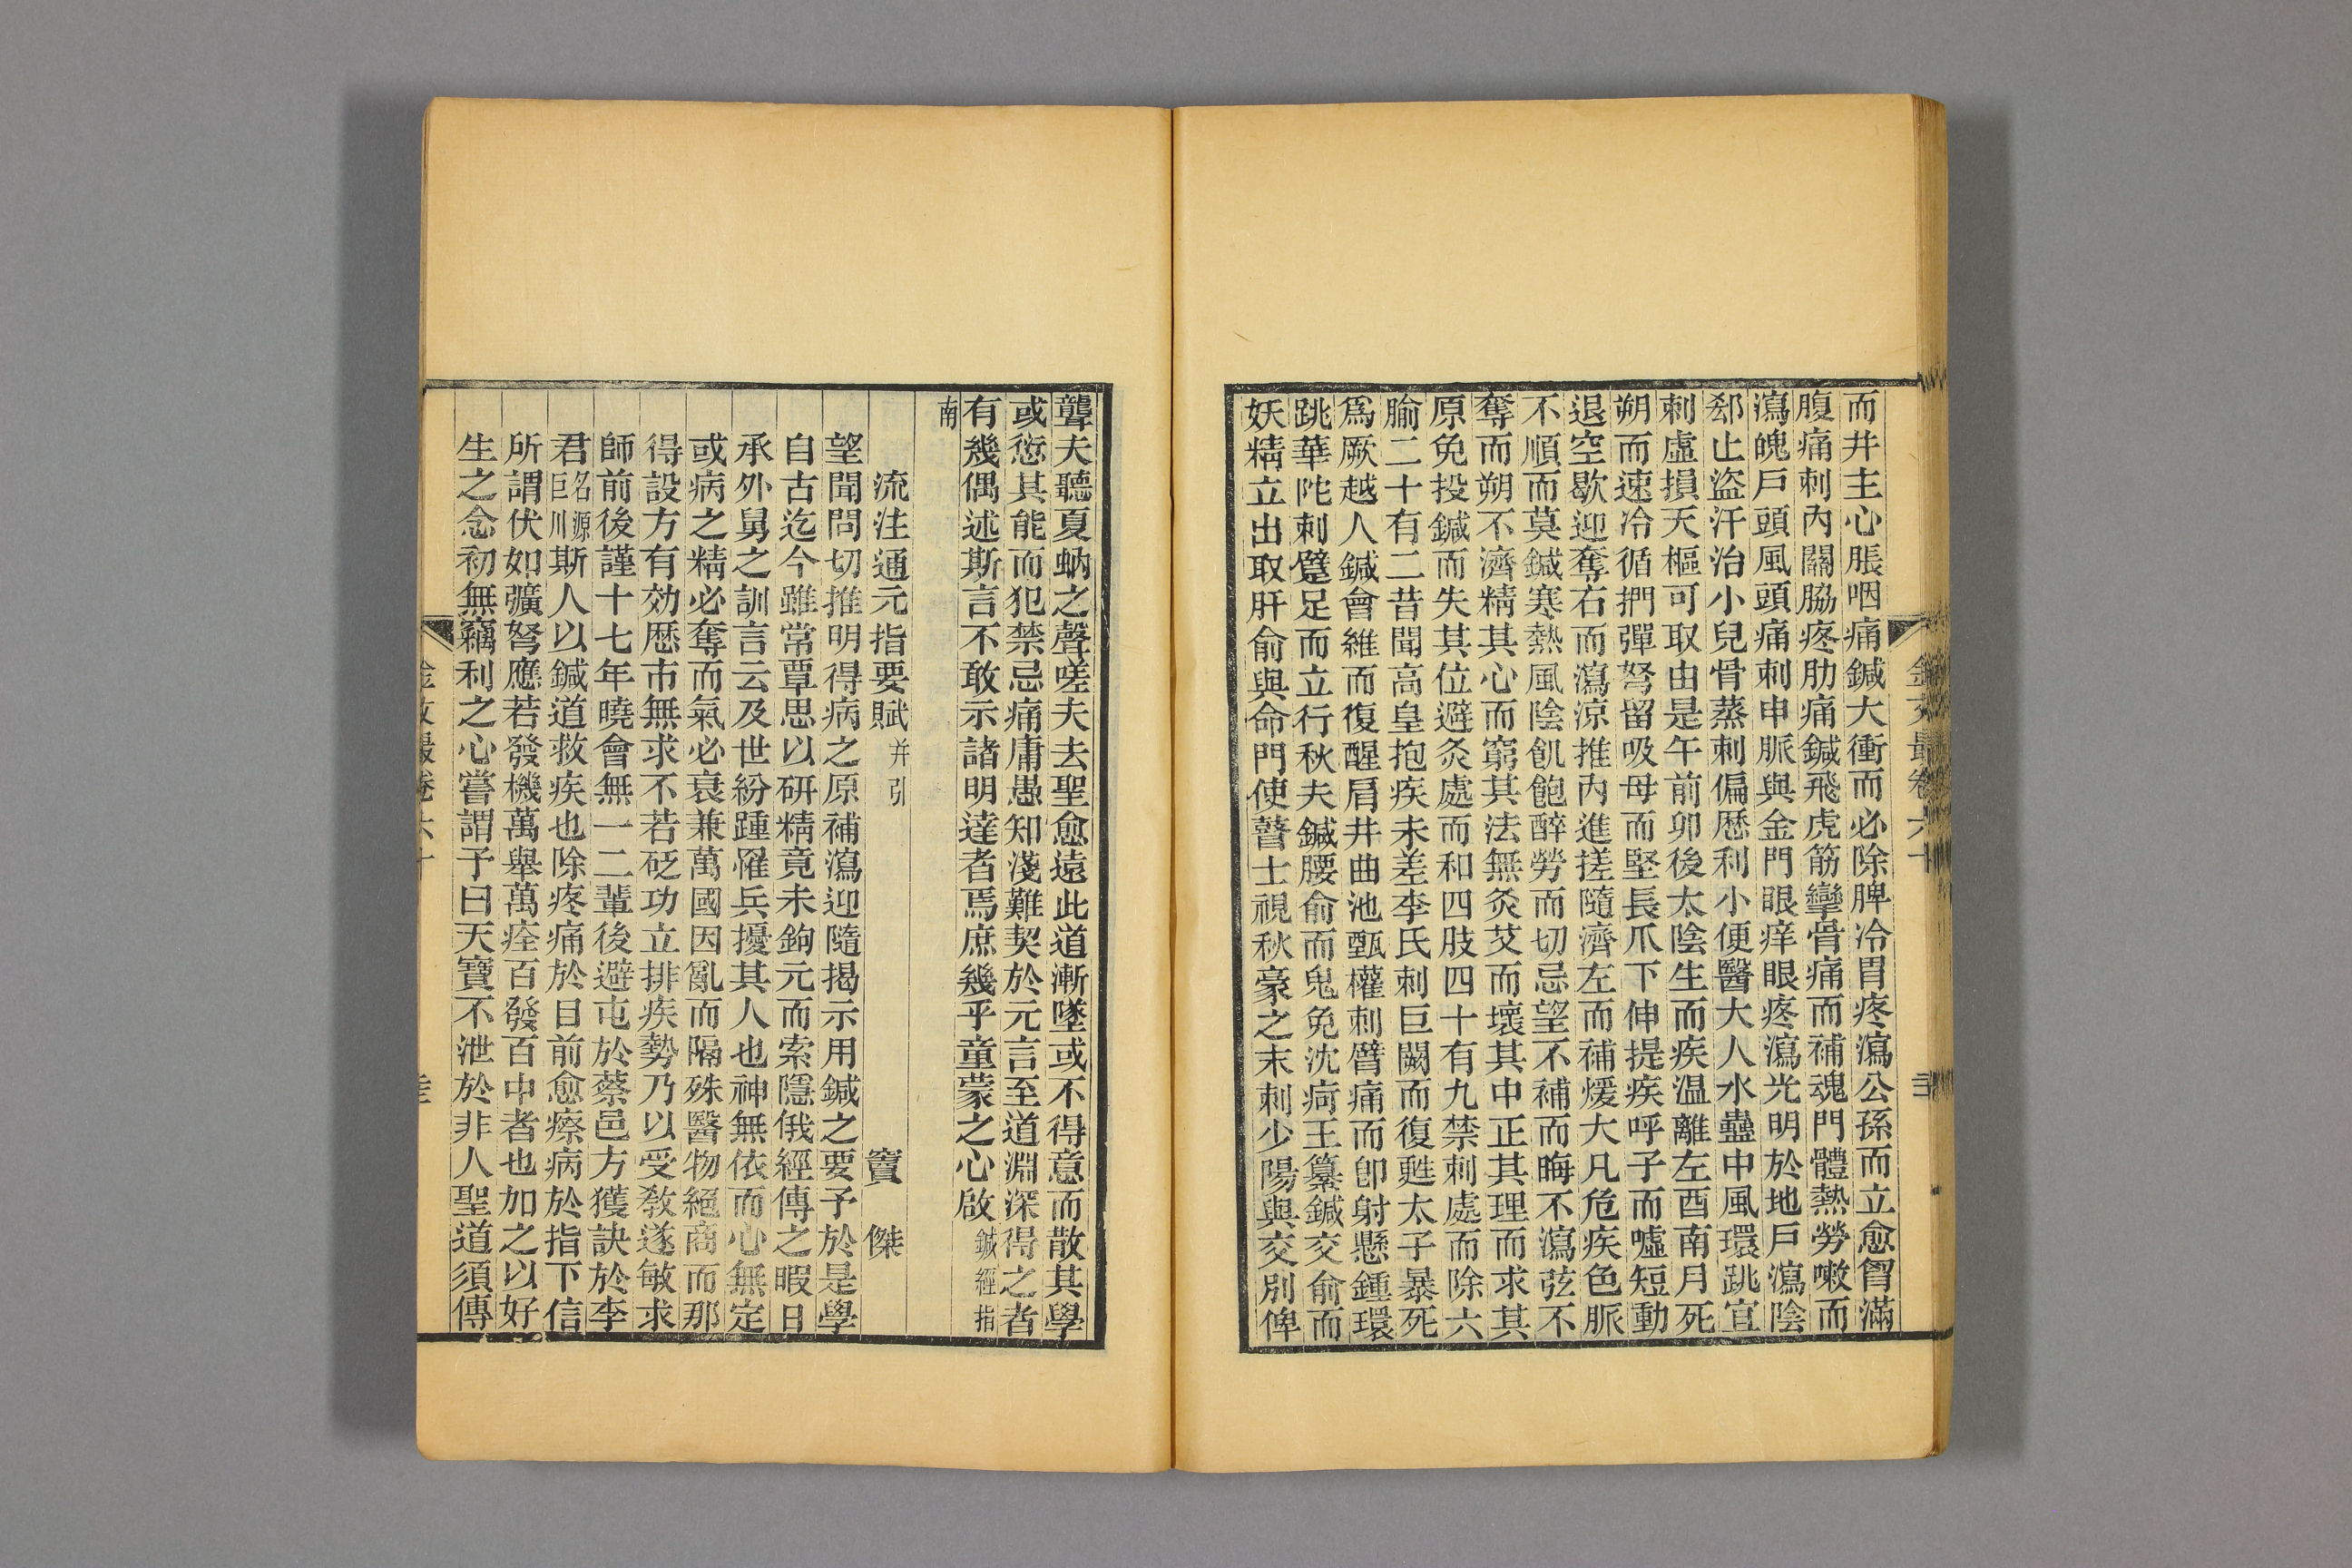 而井主心脹咽痛鍼大衝而必除脾冷胃疼瀉公孫而立愈胷滿
腹痛刺內關脇疼肋痛鍼飛虎筋攣骨痛而補魂門體熱勞嗽而
瀉魄戶頭風頭痛刺申脈與金門眼痒眼疼瀉光明於地戶瀉陰
郄止盜汗治小兒骨蒸刺偏歷利小便醫大人水蠱中風環跳宜
刺虛損天樞可取由是午前卯後太陰生而疾温離左酉南月死
朔而速冷循捫彈弩留吸母而堅長爪下伸提疾呼子而噓短動
退空歇迎奪右而瀉涼推內進搓隨濟左而補煖大凡危疾色脈
不順而莫鍼寒熱風陰飢飽醉勞而切忌望不補而晦不瀉弦不
奪而朔不濟精其心而窮其法無灸艾而壞其中正其理而求其
原免投鍼而失其位避灸處而和四肢四十有九禁刺處而除六
腧二十有二昔聞高皇抱疾未差李氏刺巨闕而復甦太子暴死
爲厥越人鍼會維而復醒肩井曲池甄權刺臂痛而卽射懸鍾環
跳華陀刺躄足而立行秋夫鍼腰俞而鬼免沈疴王纂鍼交俞而
妖精立出取肝俞與命門使瞽士視秋豪之末刺少陽與交別俾
金文最卷六十
聾夫聽夏蚋之聲嗟夫去聖愈遠此道漸墜或不得意而散其學
或愆其能而犯禁忌痛庸愚知淺難契於元言至道淵深得之者
有幾偶述斯言不敢示諸明達者焉庶幾乎童蒙之心啟鍼經指
南
流注通元指要賦并引 竇 傑
望聞問切推明得病之原補瀉迎隨揭示用鍼之要予於是學
自古迄今雖常覃思以研精竟未鉤元而索隱俄經傳之暇日
承外舅之訓言云及世紛踵罹兵擾其人也神無依而心無定
或病之精必奪而氣必衰兼萬國因亂而隔殊醫物絕商而那
得設方有効歷市無求不若砭功立排疾勢乃以受敎遂敏求
師前後謹十七年曉會無一二輩後避屯於蔡邑方獲訣於李
君名源巨川斯人以鍼道救疾也除疼痛於目前愈瘵病於指下信
所謂伏如彍弩應若發機萬舉萬痊百發百中者也加之以好
生之念初無竊利之心嘗謂予曰天寶不泄於非人聖道須傳
金文最卷六十